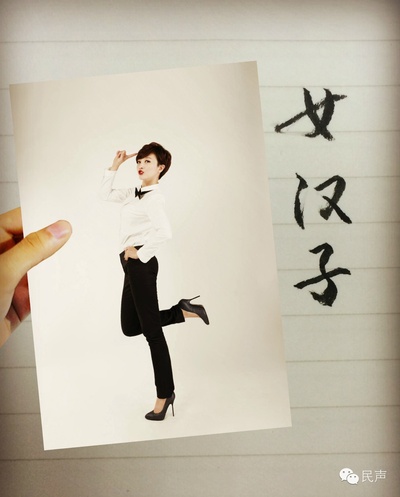 女汉子
民声